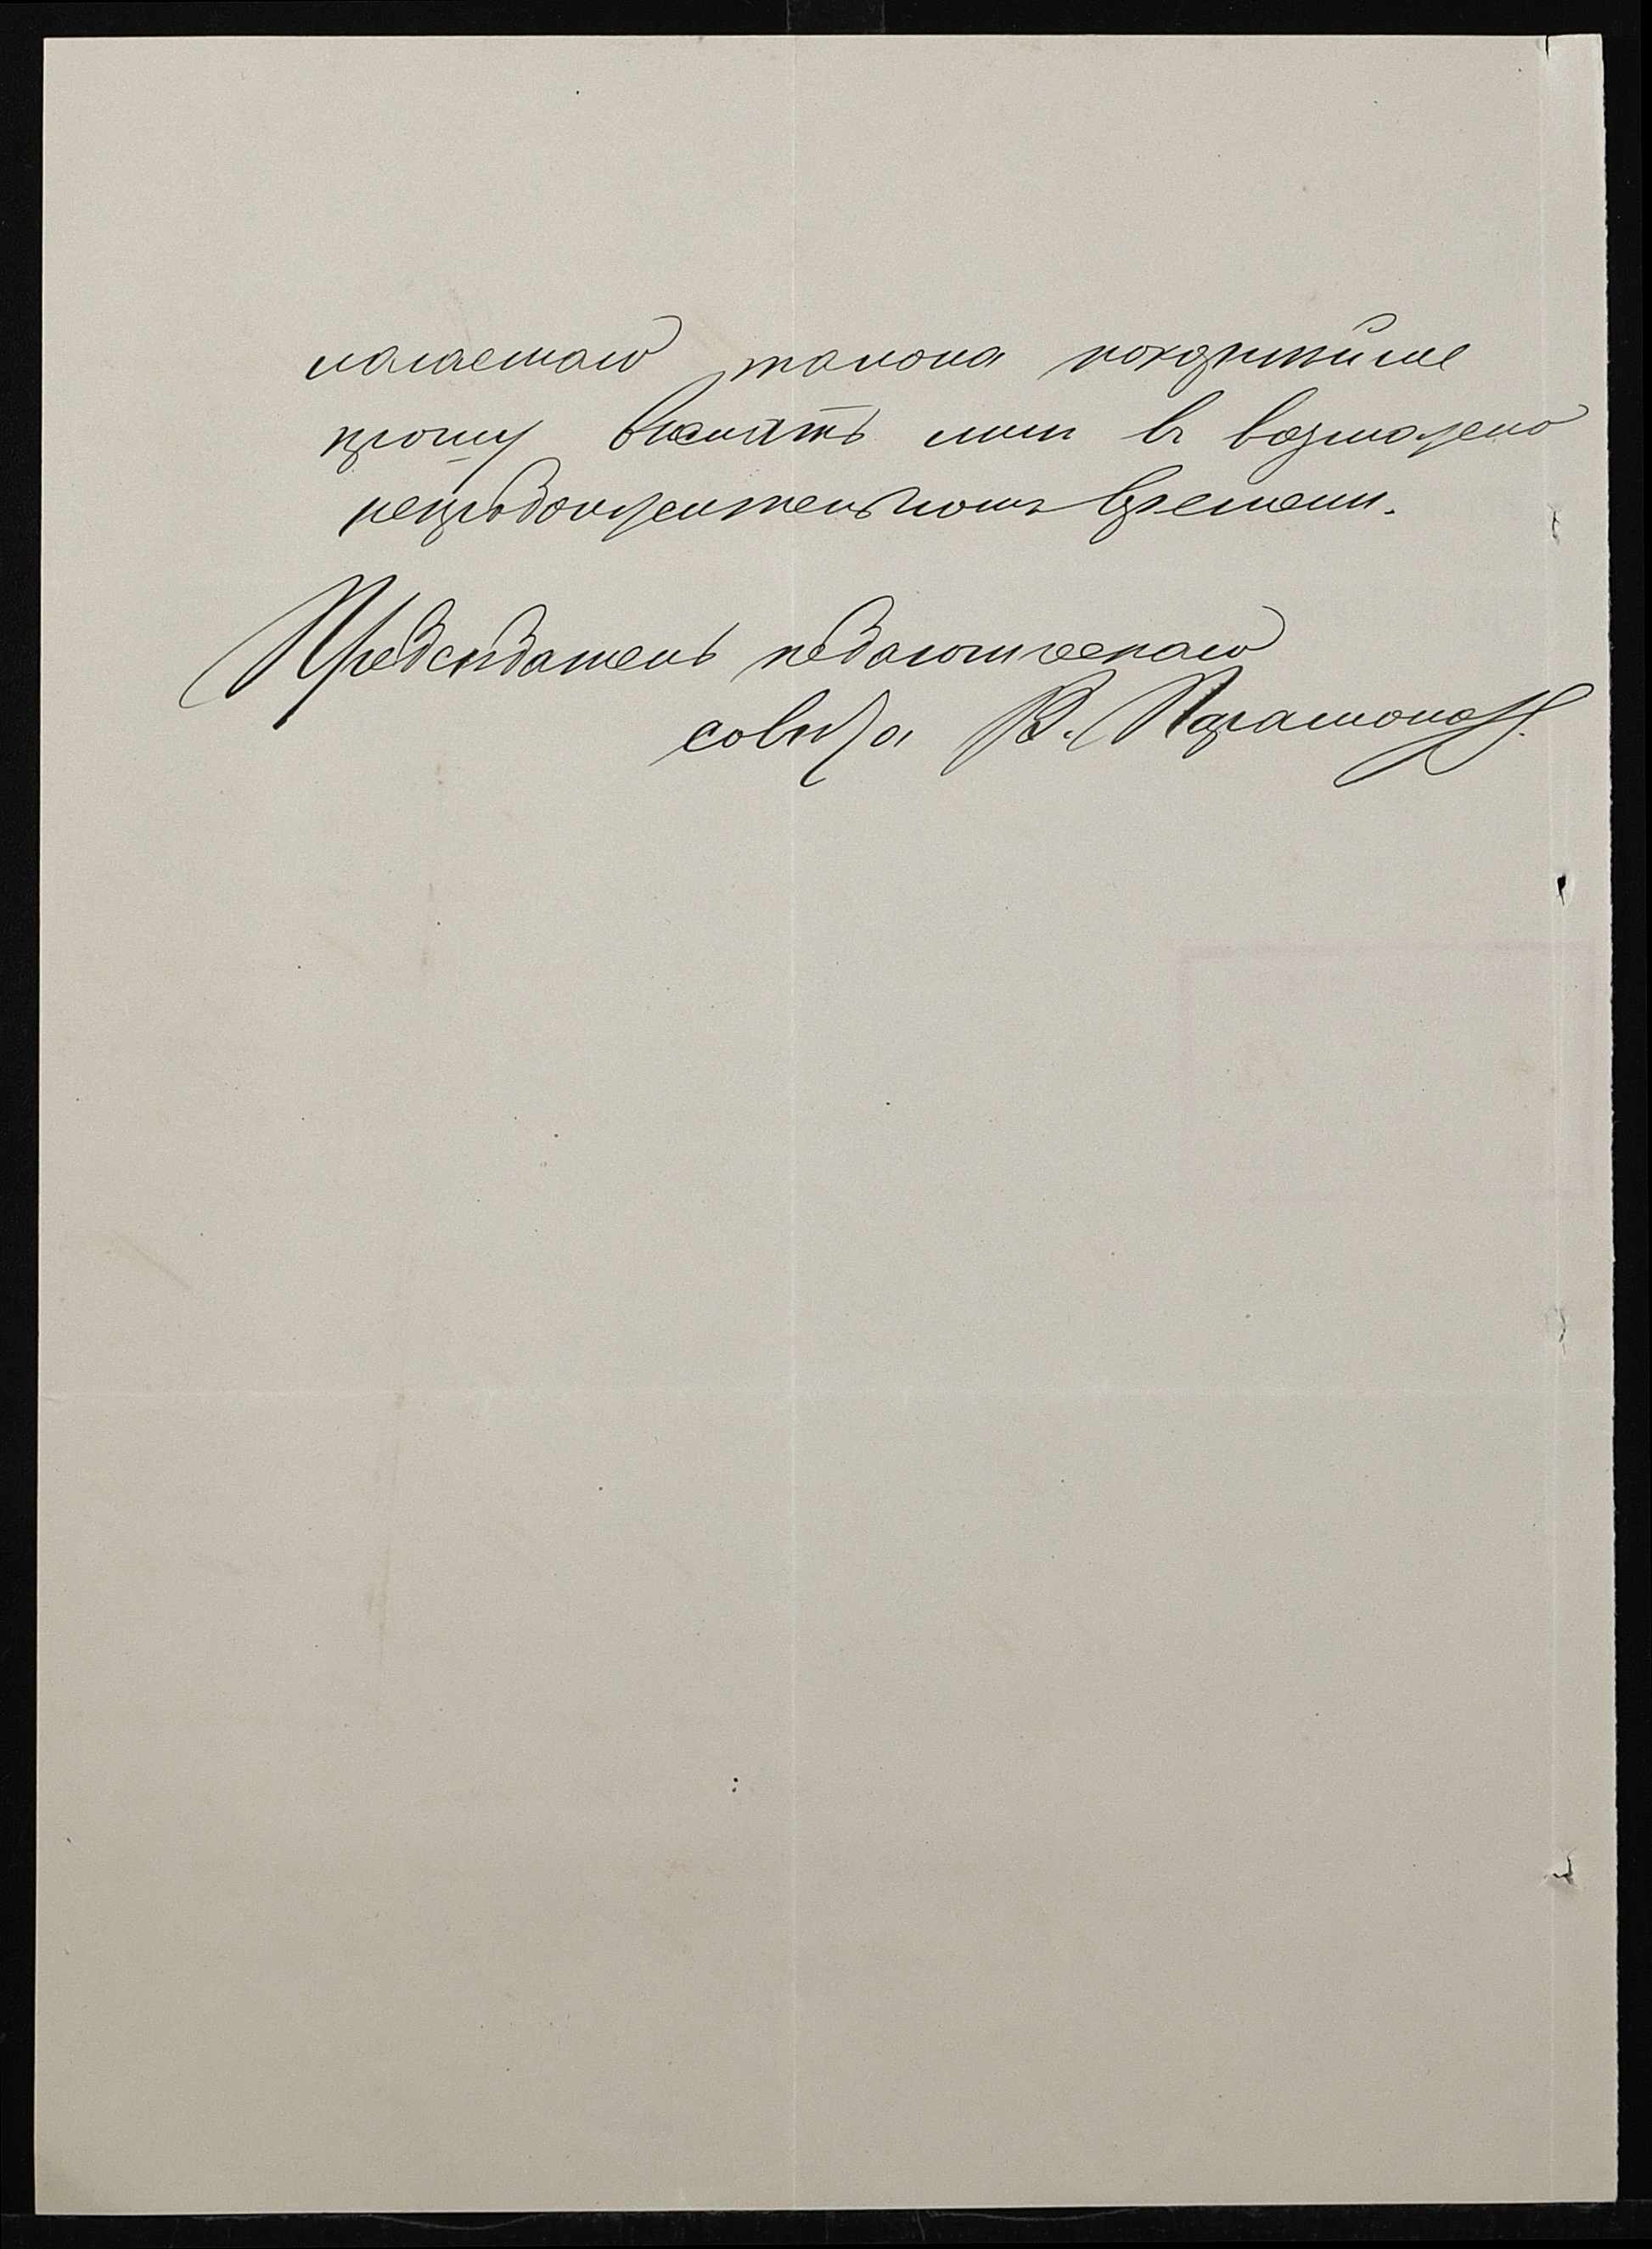 лагаемаго талона покорнѣйше
прошу выслать мнѣ въ возможно
непродолжительномъ времени.
Предсѣдатель педагогическаго
совѣта В. Парамоновъ.